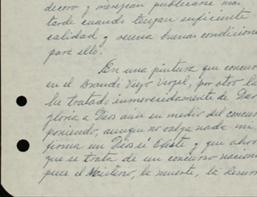 decoro y merezcan publicarse más
tarde cuando tengan suficiente
calidad y reuna buenas condiciones
para ello.
En una pintura que concurs
en el
he tratado inmerecidamente de Dar
gloria a Dios aún en medio del concur
poniendo, aunque no valga nada mi
firma un Dios Existe y que ahora
que se trata de un concurso nacional
pues el Misterio, la muerte, la Resurr